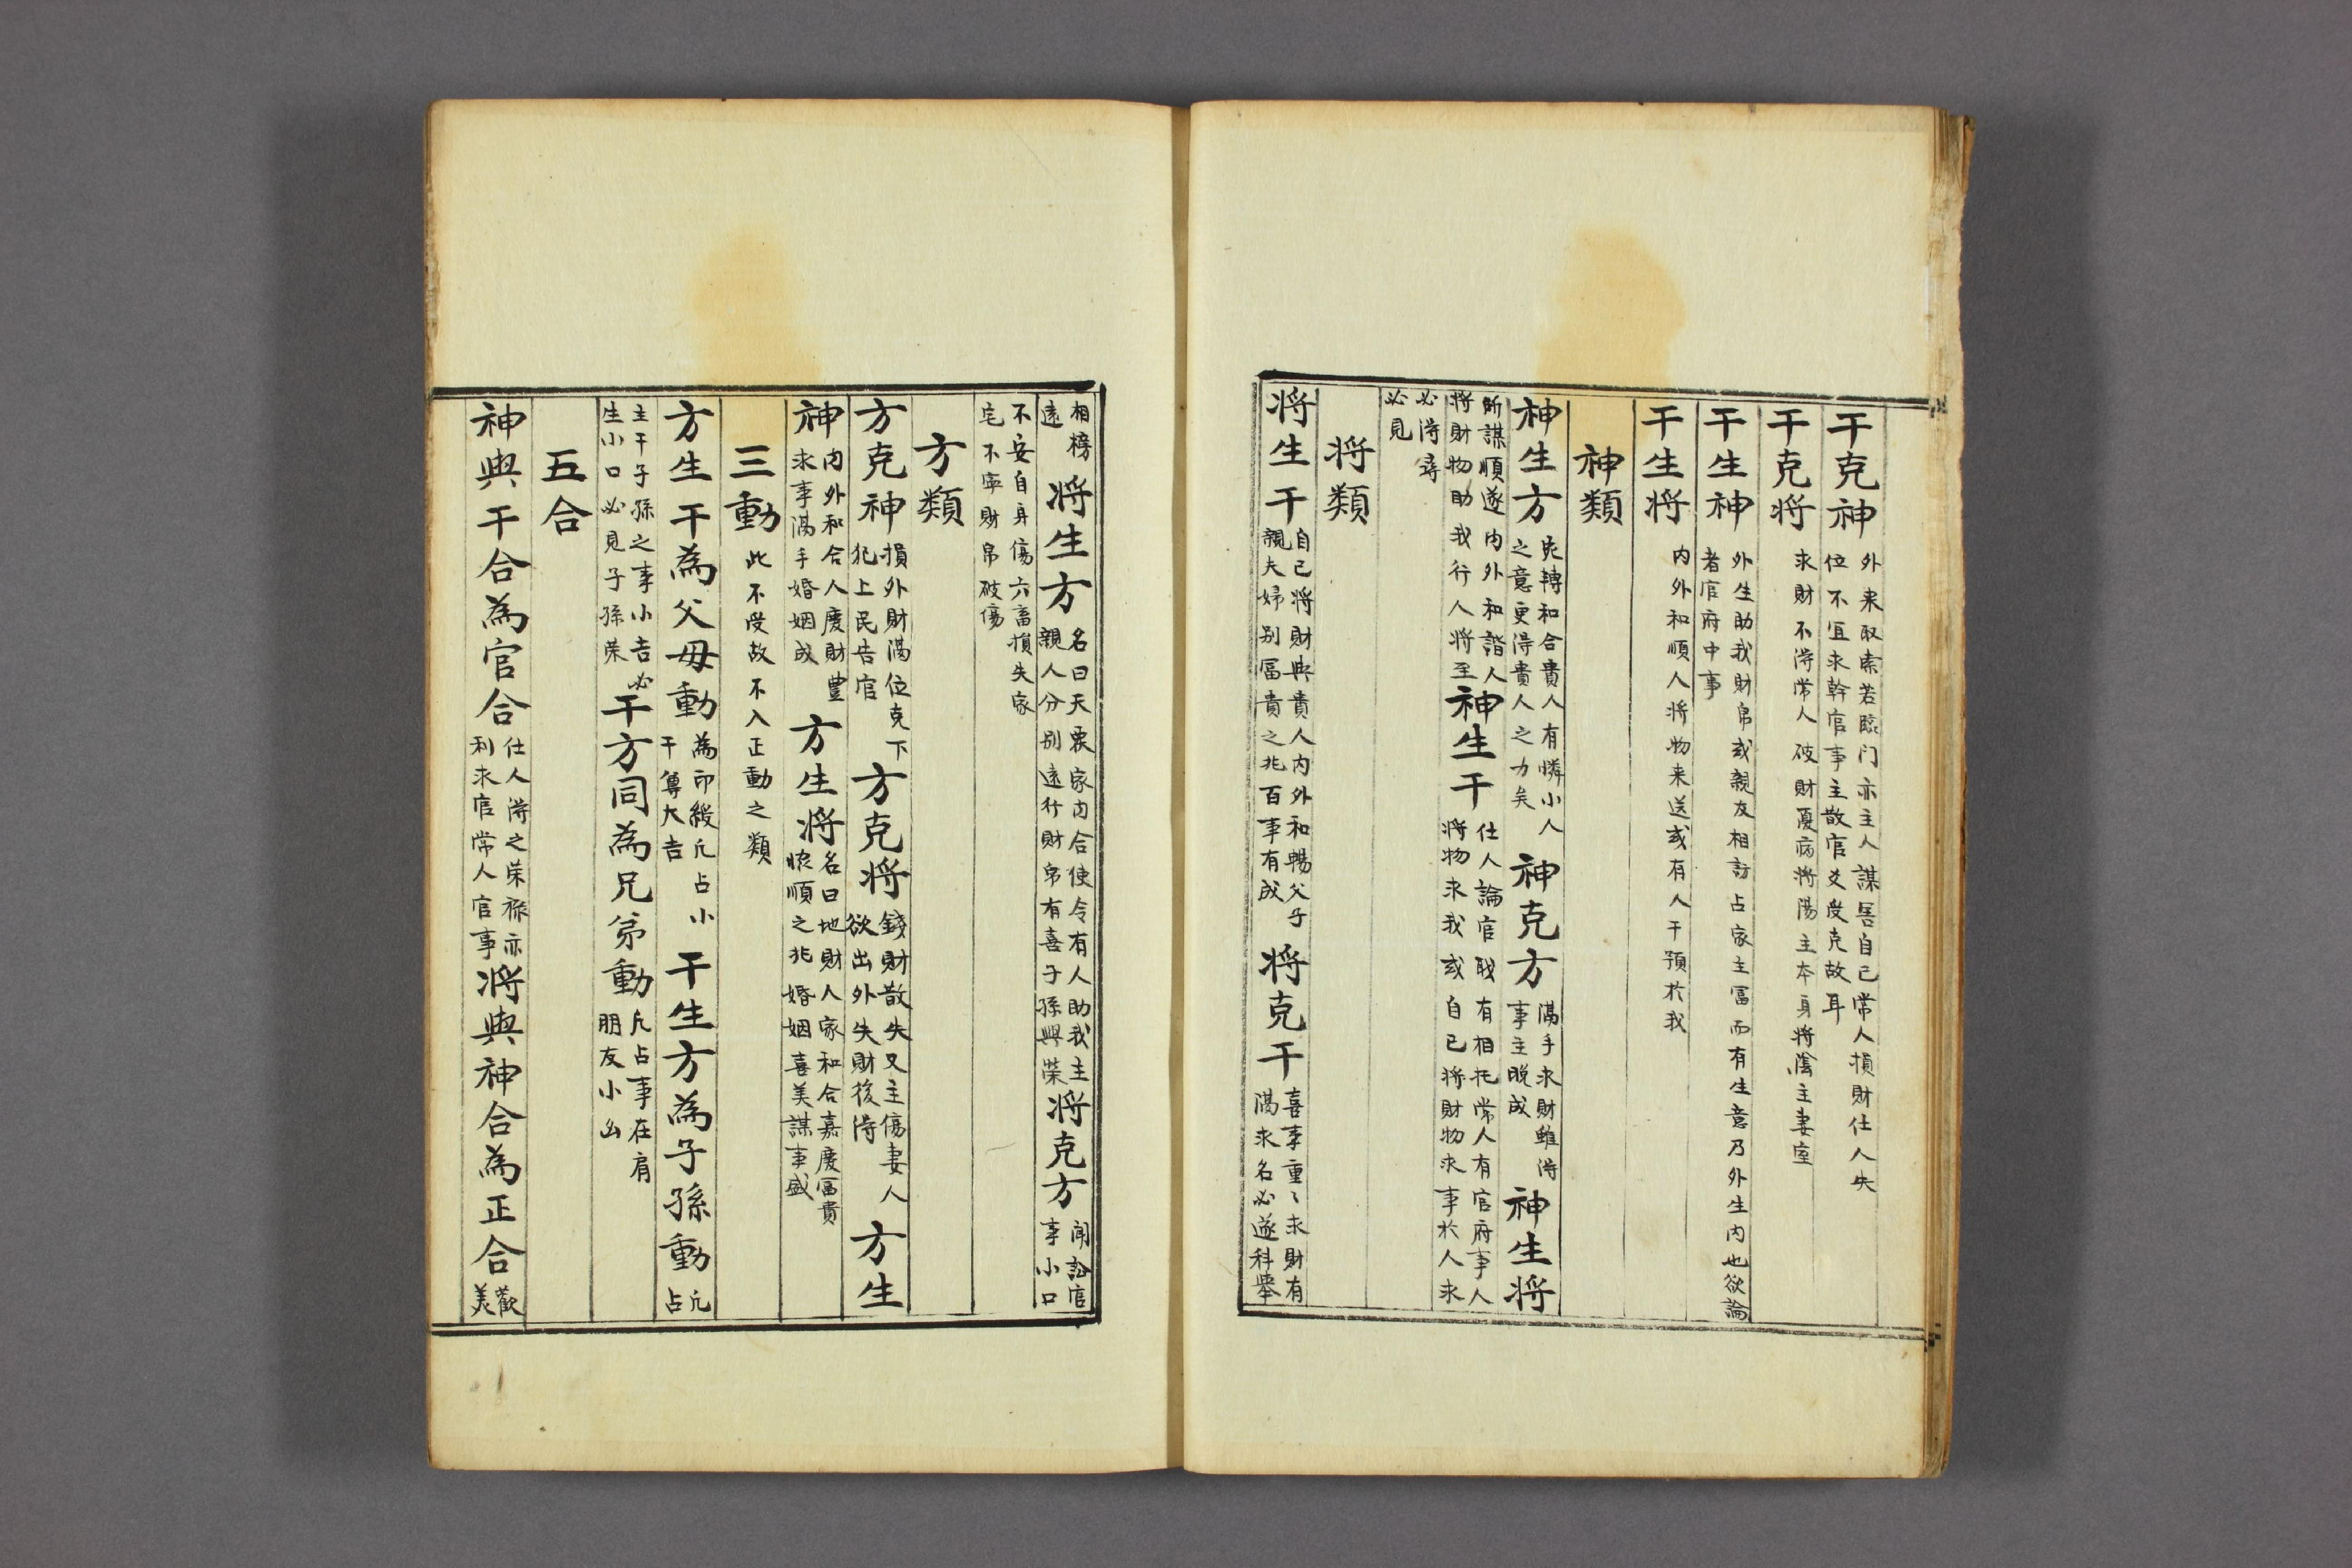 干克神 外来取索若臨门亦主人謀害自己常人損財仕人失位不宜求幹官事主散官爻受克故耳
干克将 求財不淂常人破財憂病将陽主本身将陰主妻室
干生神 外生助我財帛或親友相訪占家主冨而有生意乃外生内也欲論者官府中事
干生将 内外和順人将物来送或有人干預於我
神類
神生方 宛轉和合貴人有憐小人之意更得貴人之力矣 神克方 隔手求財雖淂事主晚成 神生将
所謀順遂内外和諧人将財物助我行人将至 神生干 仕人論官職有相托常人有官府事人将物求我或自己将財物求事於人求
必淂尋必見
将類
将生干 自己将財與貴人内外和暢父子親夫婦别冨貴之兆百事有成 将克干 喜事重〻求財有隔求名必遂科舉
相榜遠 将生方 名曰天震家内合使令有人助我主親人分别遠行財帛有喜子孫興荣 将克方 鬧訟官事小口
不安自身傷六畜損失家宅不寧財帛破傷
方類
方克神 損外財隔位克下犯上民告官 方克将 錢財散失又主傷妻人欲出外失財後淂 方生
神 内外和合人慶財豊求事隔手婚姻成 方生将 名曰地財人家和合嘉慶冨貴怡順之兆婚姻喜美謀事盛
三動 此不受故不入正動之類
方生干為父母動 為印綬凢占小干尊大吉 干生方為子孫動 凢占
主干子孫之事小吉必生小口必見子孫荣 干方同為兄弟動 凢占事在肩朋友小凶
五合
神與干合為官合 仕人淂之荣祿亦利求官常人官事 将與神合為正合 歡美